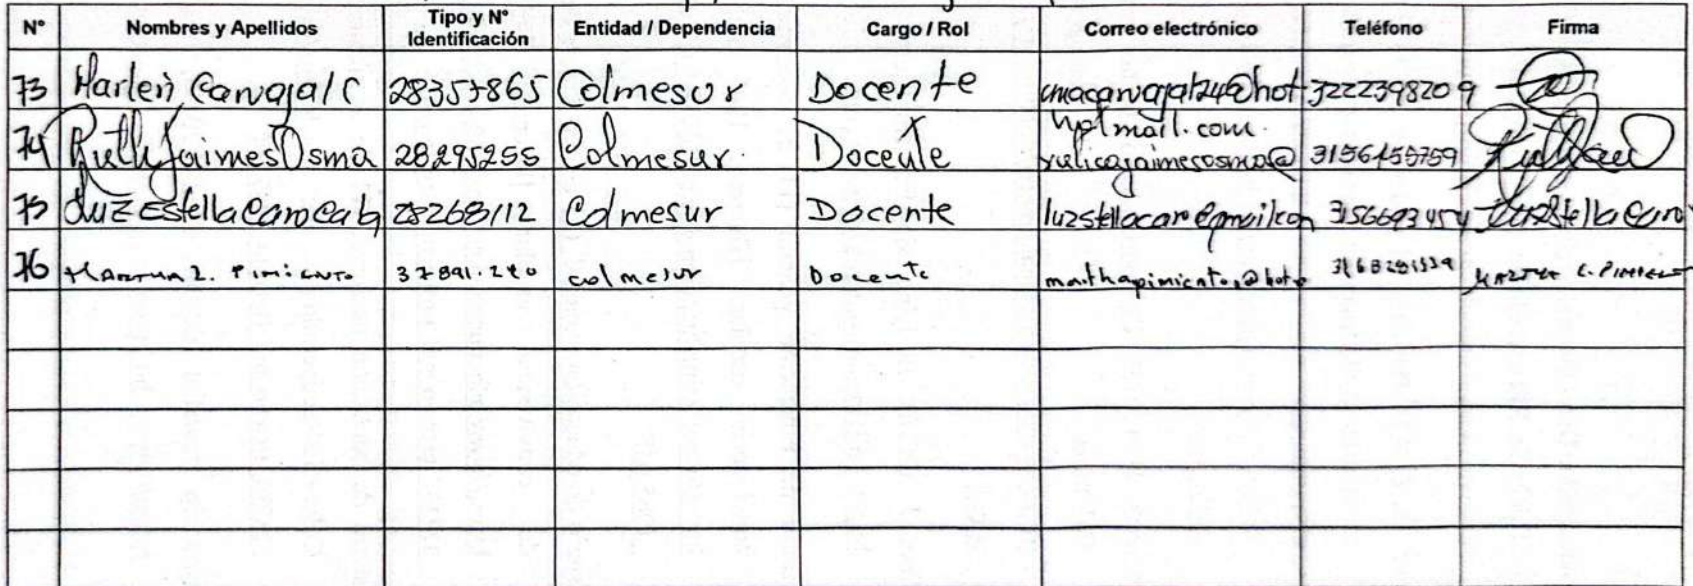 N° Nombres y Apellidos Tipo y N° Identificación Entidad / Dependencia Cargo / Rol Correo electrónico Teléfono Firma
73 Marlen Carvajal C 28357865 Colmesur Docente cmacarvajal24@hot 3222398209
74 Ruth Jaimes Osma 28295255 Colmesur. Docente hotmail.com. 3156455759
75 Luz Estella Caro Cala 28268112 Colmesur Docente luzstellacaro@gmail.com 3156693454 Luz Stella Caro
76 Martha L. Pimiento 37891.240 colmesur Docente marthapimiento1@hot Martha L. Pimiento